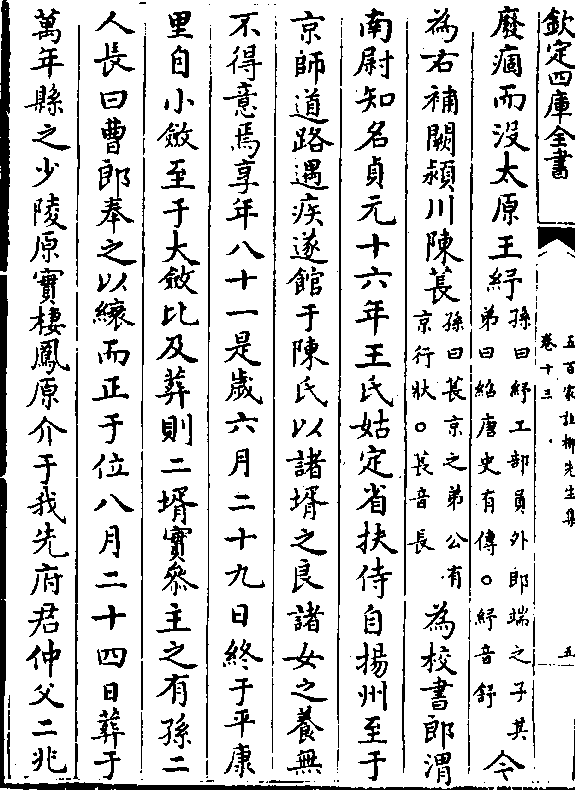 欽定四庫全書
五百家註柳先生集
卷十三
五
廢痼而没太原王紓孫曰紓工部員外郎端之子其弟曰紹唐史有傳○紓音舒今
為右補闕潁川陳萇孫曰萇京之弟公有京行狀○萇音長為校書郎渭
南尉知名貞元十六年王氏姑定省扶侍自揚州至于
京師道路遇疾遂館于陳氏以諸壻之良諸女之養無
不得意焉享年八十一是歲六月二十九日終于平康
里自小斂至于大斂比及葬則二壻實叅主之有孫二
人長曰曹郎奉之以縗而正于位八月二十四日葬于
萬年縣之少陵原實棲鳳原介于我先府君仲父二兆